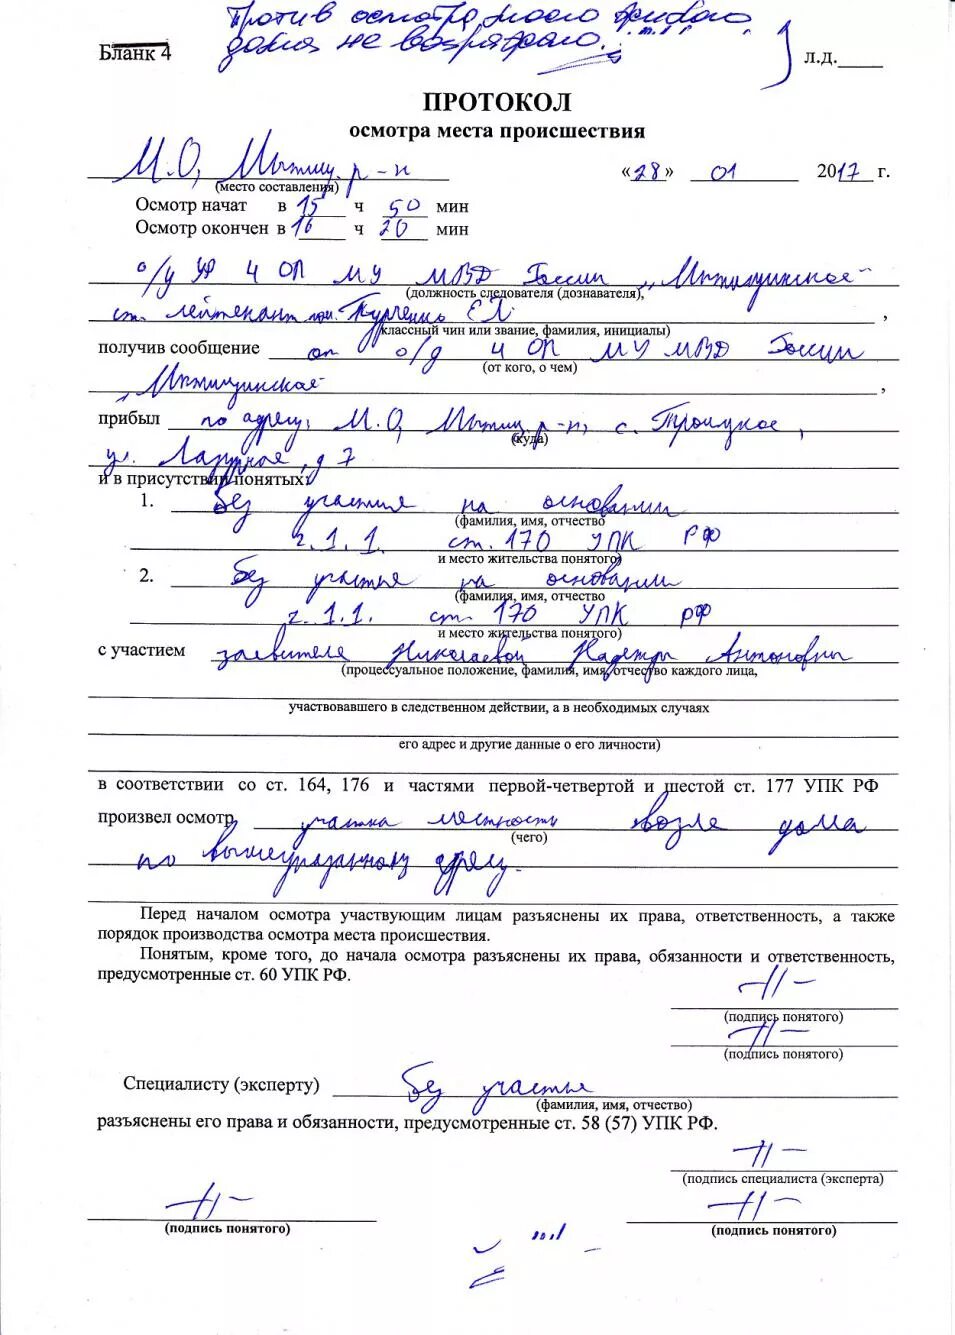 Против осмотра моего жилого
дома не возражаю.
Бланк 4
л.д.
ПРОТОКОЛ
осмотра места происшествия
М.О, Мытищ. р-н «28» 01 2017 г.
(место составления)
Осмотр начат в 15 ч 50 мин
Осмотр окончен в 16 ч 20 мин
о/у УР 4 ОП МУ МВД России „Мытищинское"
(должность следователя (дознавателя),
ст. лейтенант пол. Е.Л. ,
классный чин или звание, фамилия, инициалы)
получив сообщение от о/д 4 ОП МУ МВД России
(от кого, о чем)
„Мытищинское" ,
прибыл по адресу: М.О, Мытищ р-н, с. Троицкое,
(куда)
ул. д 7
и в присутствии понятых:
1. без участия на основании
(фамилия, имя, отчество
ч.1.1. ст. 170 УПК РФ
и место жительства понятого)
2. без участия на основании
(фамилия, имя, отчество
ч.1.1. ст. 170 УПК РФ
и место жительства понятого)
с участием заявителя Николаевой Надежды Антоновны
(процессуальное положение, фамилия, имя, отчество каждого лица,
участвовавшего в следственном действии, а в необходимых случаях
его адрес и другие данные о его личности)
в соответствии со ст. 164, 176 и частями первой-четвертой и шестой ст. 177 УПК РФ
произвел осмотр участка местность возле дома
(чего)
по вышеуказанному адресу.
Перед началом осмотра участвующим лицам разъяснены их права, ответственность, а также
порядок производства осмотра места происшествия.
Понятым, кроме того, до начала осмотра разъяснены их права, обязанности и ответственность,
предусмотренные ст. 60 УПК РФ.
-//-
(подпись понятого)
-//-
(подпись понятого)
Специалисту (эксперту) без участия
(фамилия, имя, отчество)
разъяснены его права и обязанности, предусмотренные ст. 58 (57) УПК РФ.
-//-
(подпись специалиста (эксперта)
-//- -//-
(подпись понятого) (подпись понятого)